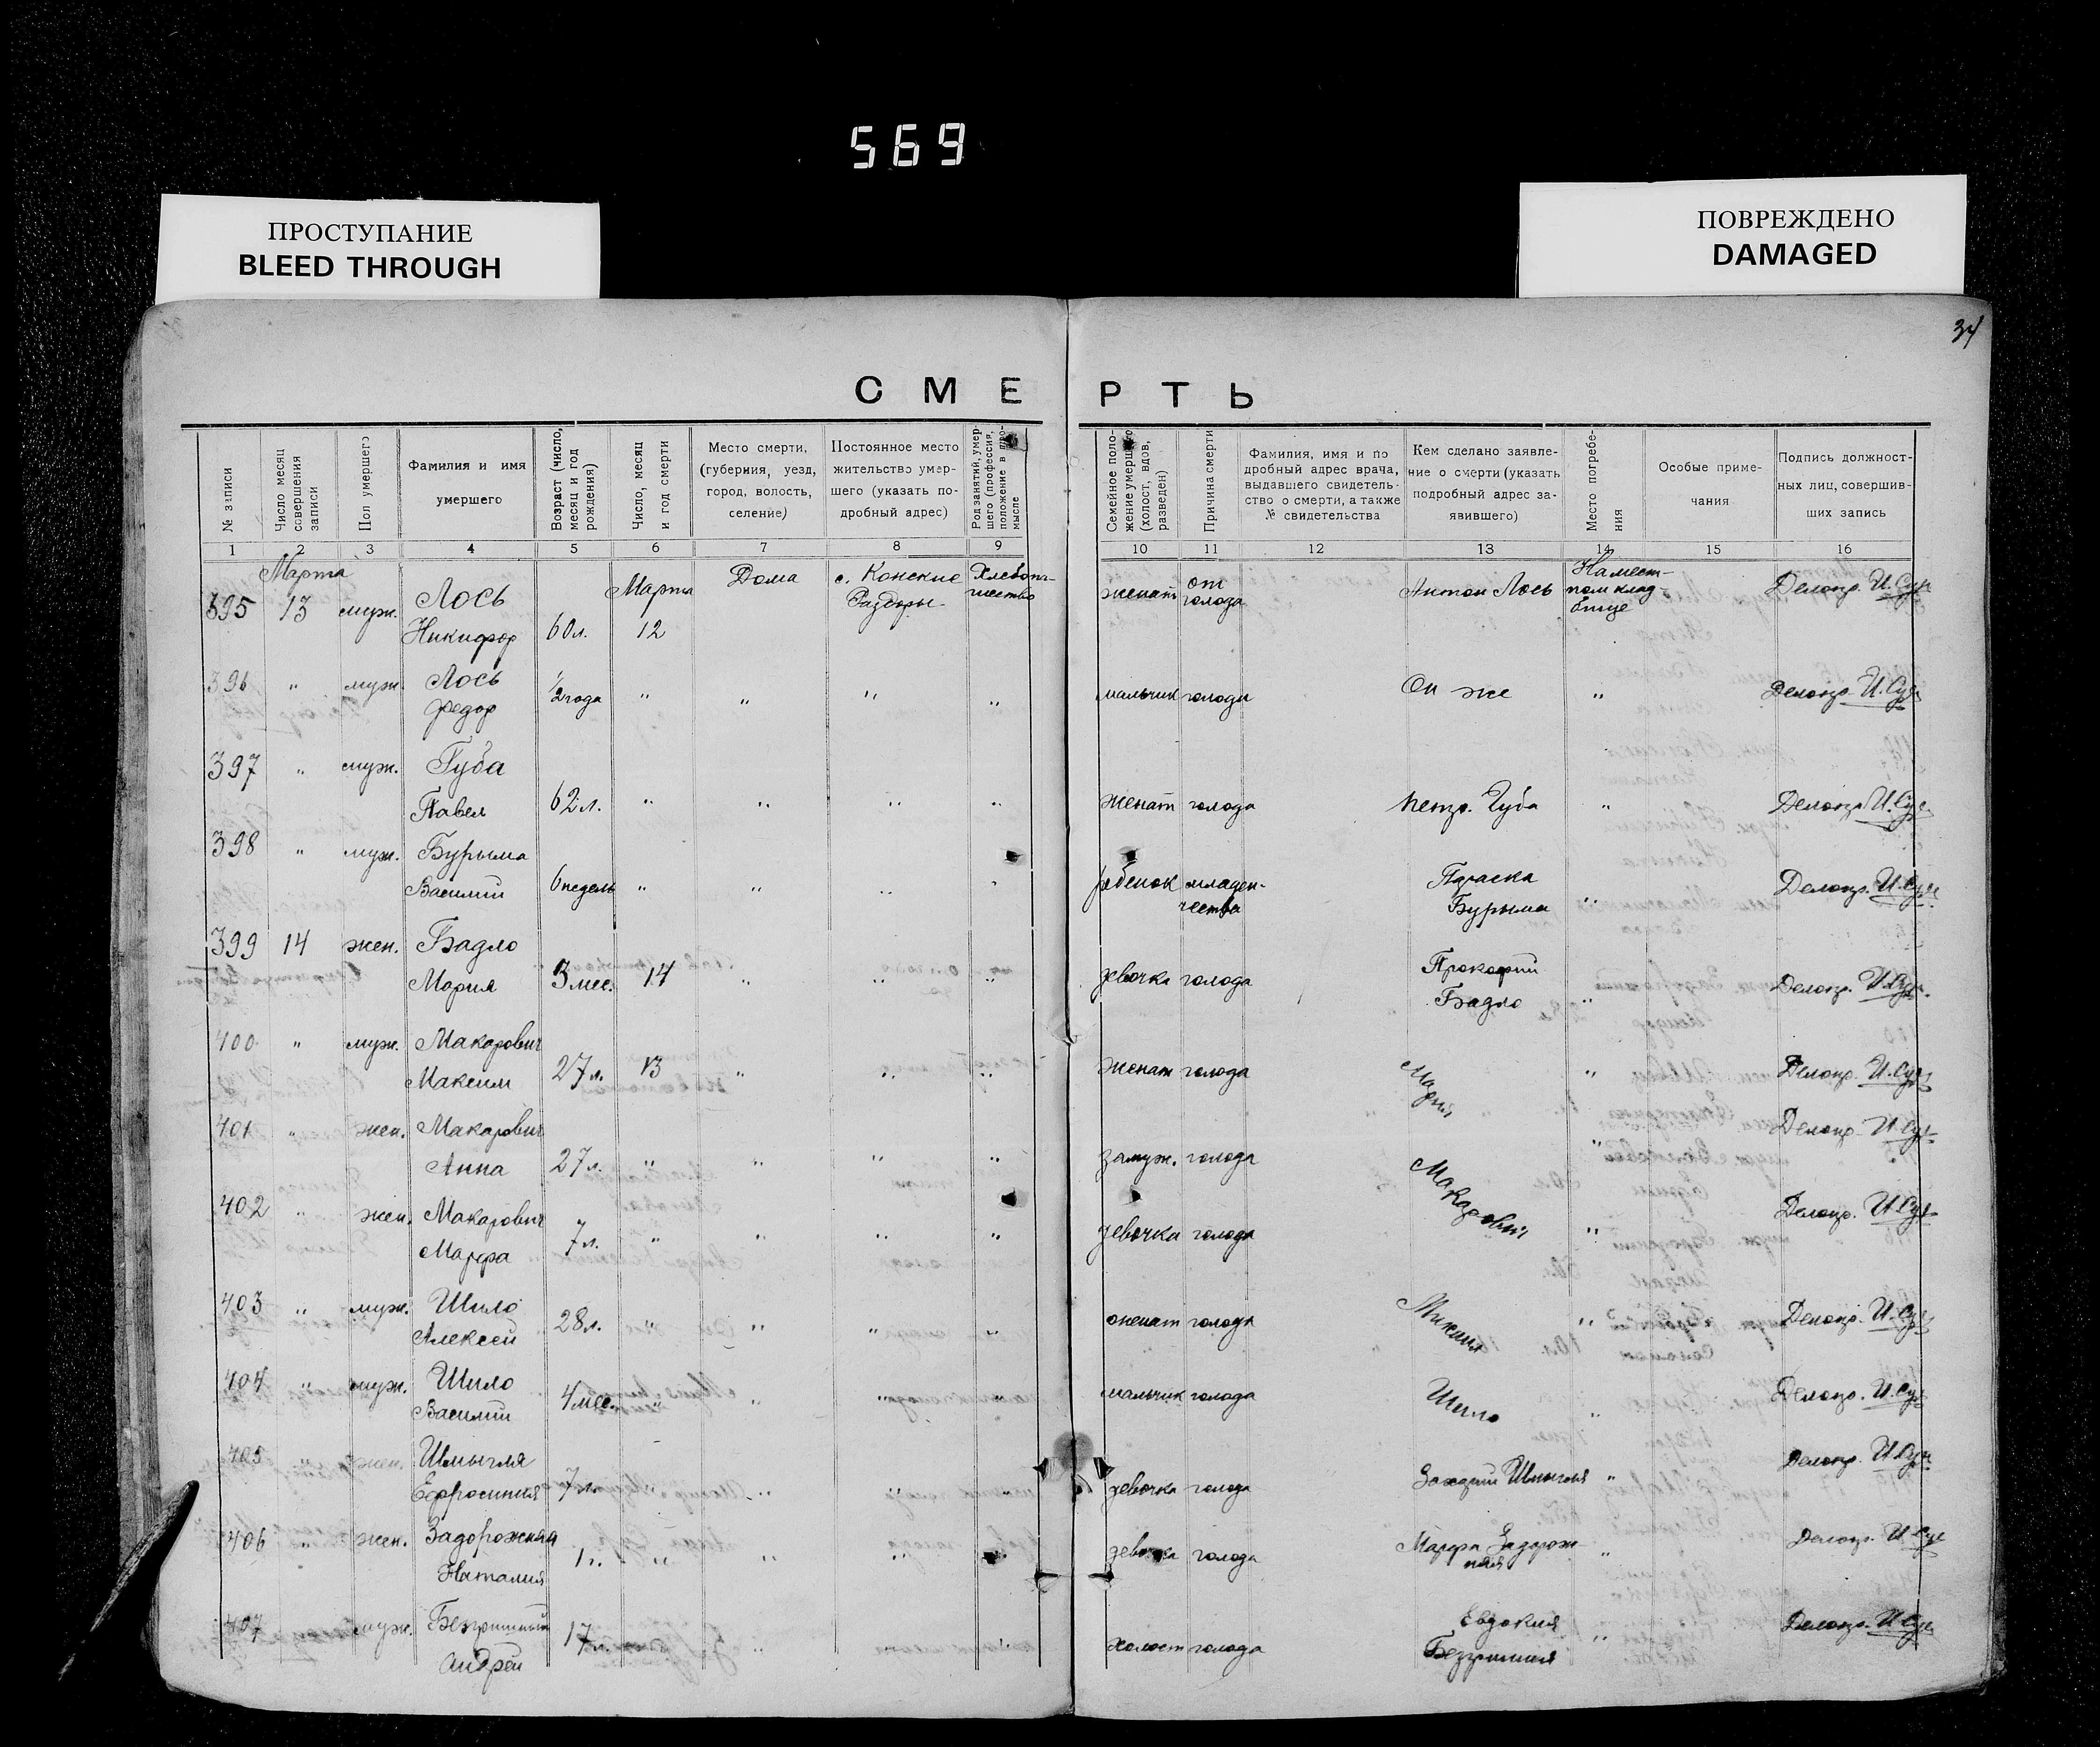 569
ПРОСТУПАНИЕ
BLEED THROUGH
ПОВРЕЖДЕНО
DAMAGED
34
СМЕРТЬ
№ записи
Число месяц совершения записи
Пол умершего
Фамилия и имя умершего
Возраст (число, месяц и год рождения)
Число, месяц и год смерти
Место смерти, (губерния, уезд, город, волость, селение)
Постоянное место жительство умершего (указать подробный адрес)
Род занятий, умершего (профессия, положение в промысле
Семейное положение умершего (холост, вдов, разведен)
Причина смерти
Фамилия, имя и подробный адрес врача, выдавшего свидетельство о смерти, а также № свидетельства
Кем сделано заявление о смерти (указать подробный адрес заявившего)
Место погребения
Особые примечания
Подпись должностных лиц, совершивших запись
1 2 3 4 5 6 7 8 9 10 11 12 13 14 15 16
395 Марта 13 муж. Лось Никифор 60 л. Марта 12 Дома с. Конские Раздоры женат от голода Антон Лось Делопр. И. Сук
396 " муж. Лось Федор 1/2 года " " " " мальчик голода Он же " Делопр. И. Сук
397 " муж. Губа Павел 62 л. " " " " женат голода Петр. Губа " Делопр. И. Сук
398 " муж. Бурыма Василий 6 недель " " " " ребенок младенчества Параска Бурыма " Делопр. И. Сук
399 14 жен. Бадло Мария 3 мес. 14 " " " девочка голода Прокофий Бадло " Делопр. И. Сук
400 " муж. Макарович Максим 27 л. 13 " " " женат голода Мария " Делопр. И. Сук
401 " жен. Макарович Анна 27 л. " " " " замуж. голода " Делопр. И. Сук
402 " жен. Макарович Марфа 7 л. " " " " девочка голода Макарович " Делопр. И. Сук
403 " муж. Шило Алексей 28 л. " " " " женат голода Михаил " Делопр. И. Сук
404 " муж. Шило Василий 4 мес. " " " " мальчик голода Шило " Делопр. И. Сук
405 " жен. Шмыгля Ефросиния 7 л. " " " " девочка голода Захарий Шмыгля " Делопр. И. Сук
406 " жен. Задорожная Наталия 1 г. " " " " девочка голода Марфа Задорожная " Делопр. И. Сук
407 муж. Андрей 17 л. " " холост голода Евдокия " Делопр. И. Сук